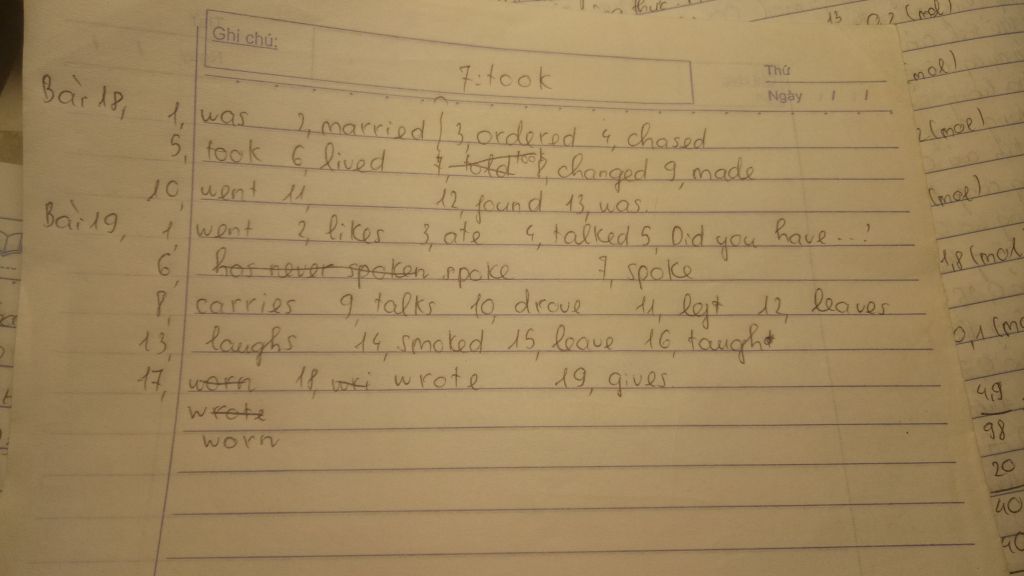 Ghi chú:
7: took
Thứ
Ngày / /
Bài 18, 1, was 2, married 3, ordered 4, chased
5, took 6, lived 7, told took 8, changed 9, made
10, went 11, 12, found 13, was
Bài 19, 1, went 2, likes 3, ate 4, talked 5, Did you have...?
6, has never spoken spoke 7, spoke
8, carries 9, talks 10, drove 11, left 12, leaves
13, laughs 14, smoked 15, leave 16, taught
17, worn 18, wri wrote 19, gives
wrote
worn
thức
13 0,2 (mol)
(mol)
2 (mol)
(mol)
1,8 (mol)
2,1 (mo
49
98
20
40